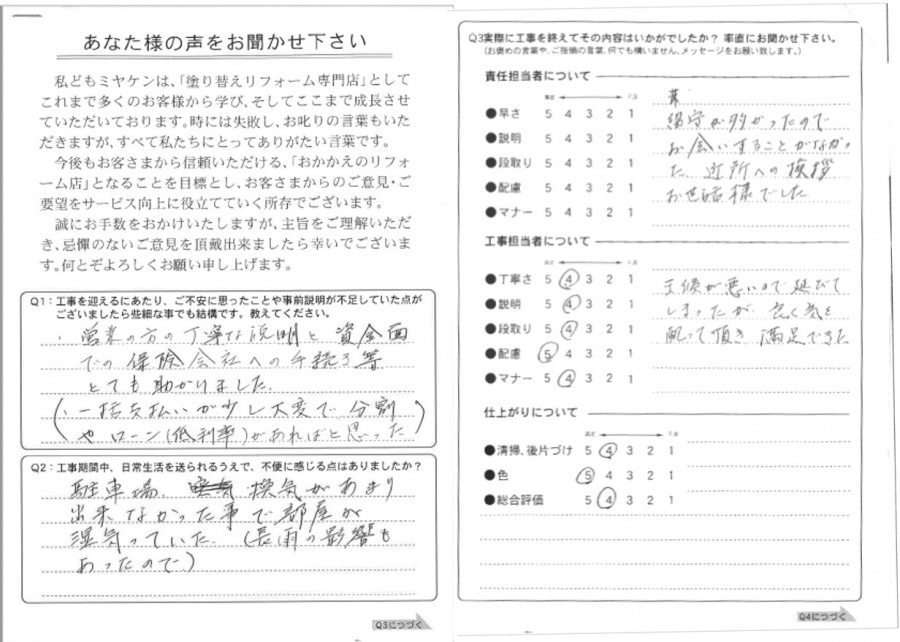 あなた様の声をお聞かせ下さい
私どもミヤケンは、「塗り替えリフォーム専門店」として
これまで多くのお客様から学び、そしてここまで成長させ
ていただいております。時には失敗し、お叱りの言葉もいた
だきますが、すべて私たちにとってありがたい言葉です。
今後もお客さまから信頼いただける、「おかかえのリフォ
ーム店」となることを目標とし、お客さまからのご意見・ご
要望をサービス向上に役立てていく所存でございます。
誠にお手数をおかけいたしますが、主旨をご理解いただ
き、忌憚のないご意見を頂戴出来ましたら幸いでございま
す。何とぞよろしくお願い申し上げます。
Q1：工事を迎えるにあたり、ご不安に思ったことや事前説明が不足していた点が
ございましたら些細な事でも結構です。教えてください。
・営業の方の丁寧な説明と資金面
での保険会社への手続き等
とても助かりました。
(・一括支払いが少し大変で分割
やローン(低利率)があればと思った)
Q2：工事期間中、日常生活を送られるうえで、不便に感じる点はありましたか？
駐車場、換気があまり
出来なかった事で部屋が
湿気っていた。(長雨の影響も
あったので)
Q3につづく
Q3実際に工事を終えてその内容はいかがでしたか？ 率直にお聞かせ下さい。
(お褒めの言葉や、ご指摘の言葉、何でも構いません、メッセージをお願い致します。)
責任担当者について
満足 不満
●早さ 5 4 3 2 1
●説明 5 4 3 2 1
●段取り 5 4 3 2 1
●配慮 5 4 3 2 1
●マナー 5 4 3 2 1
留守が多かったので
お会いすることがなかっ
た。近所への挨拶
お世話様でした
工事担当者について
満足 不満
●丁寧さ 5 4 3 2 1
●説明 5 4 3 2 1
●段取り 5 4 3 2 1
●配慮 5 4 3 2 1
●マナー 5 4 3 2 1
天候が悪いので延びて
しまったが、良く気を
配って頂き満足できた
仕上がりについて
満足 不満
●清掃、後片づけ 5 4 3 2 1
●色 5 4 3 2 1
●総合評価 5 4 3 2 1
Q4につづく